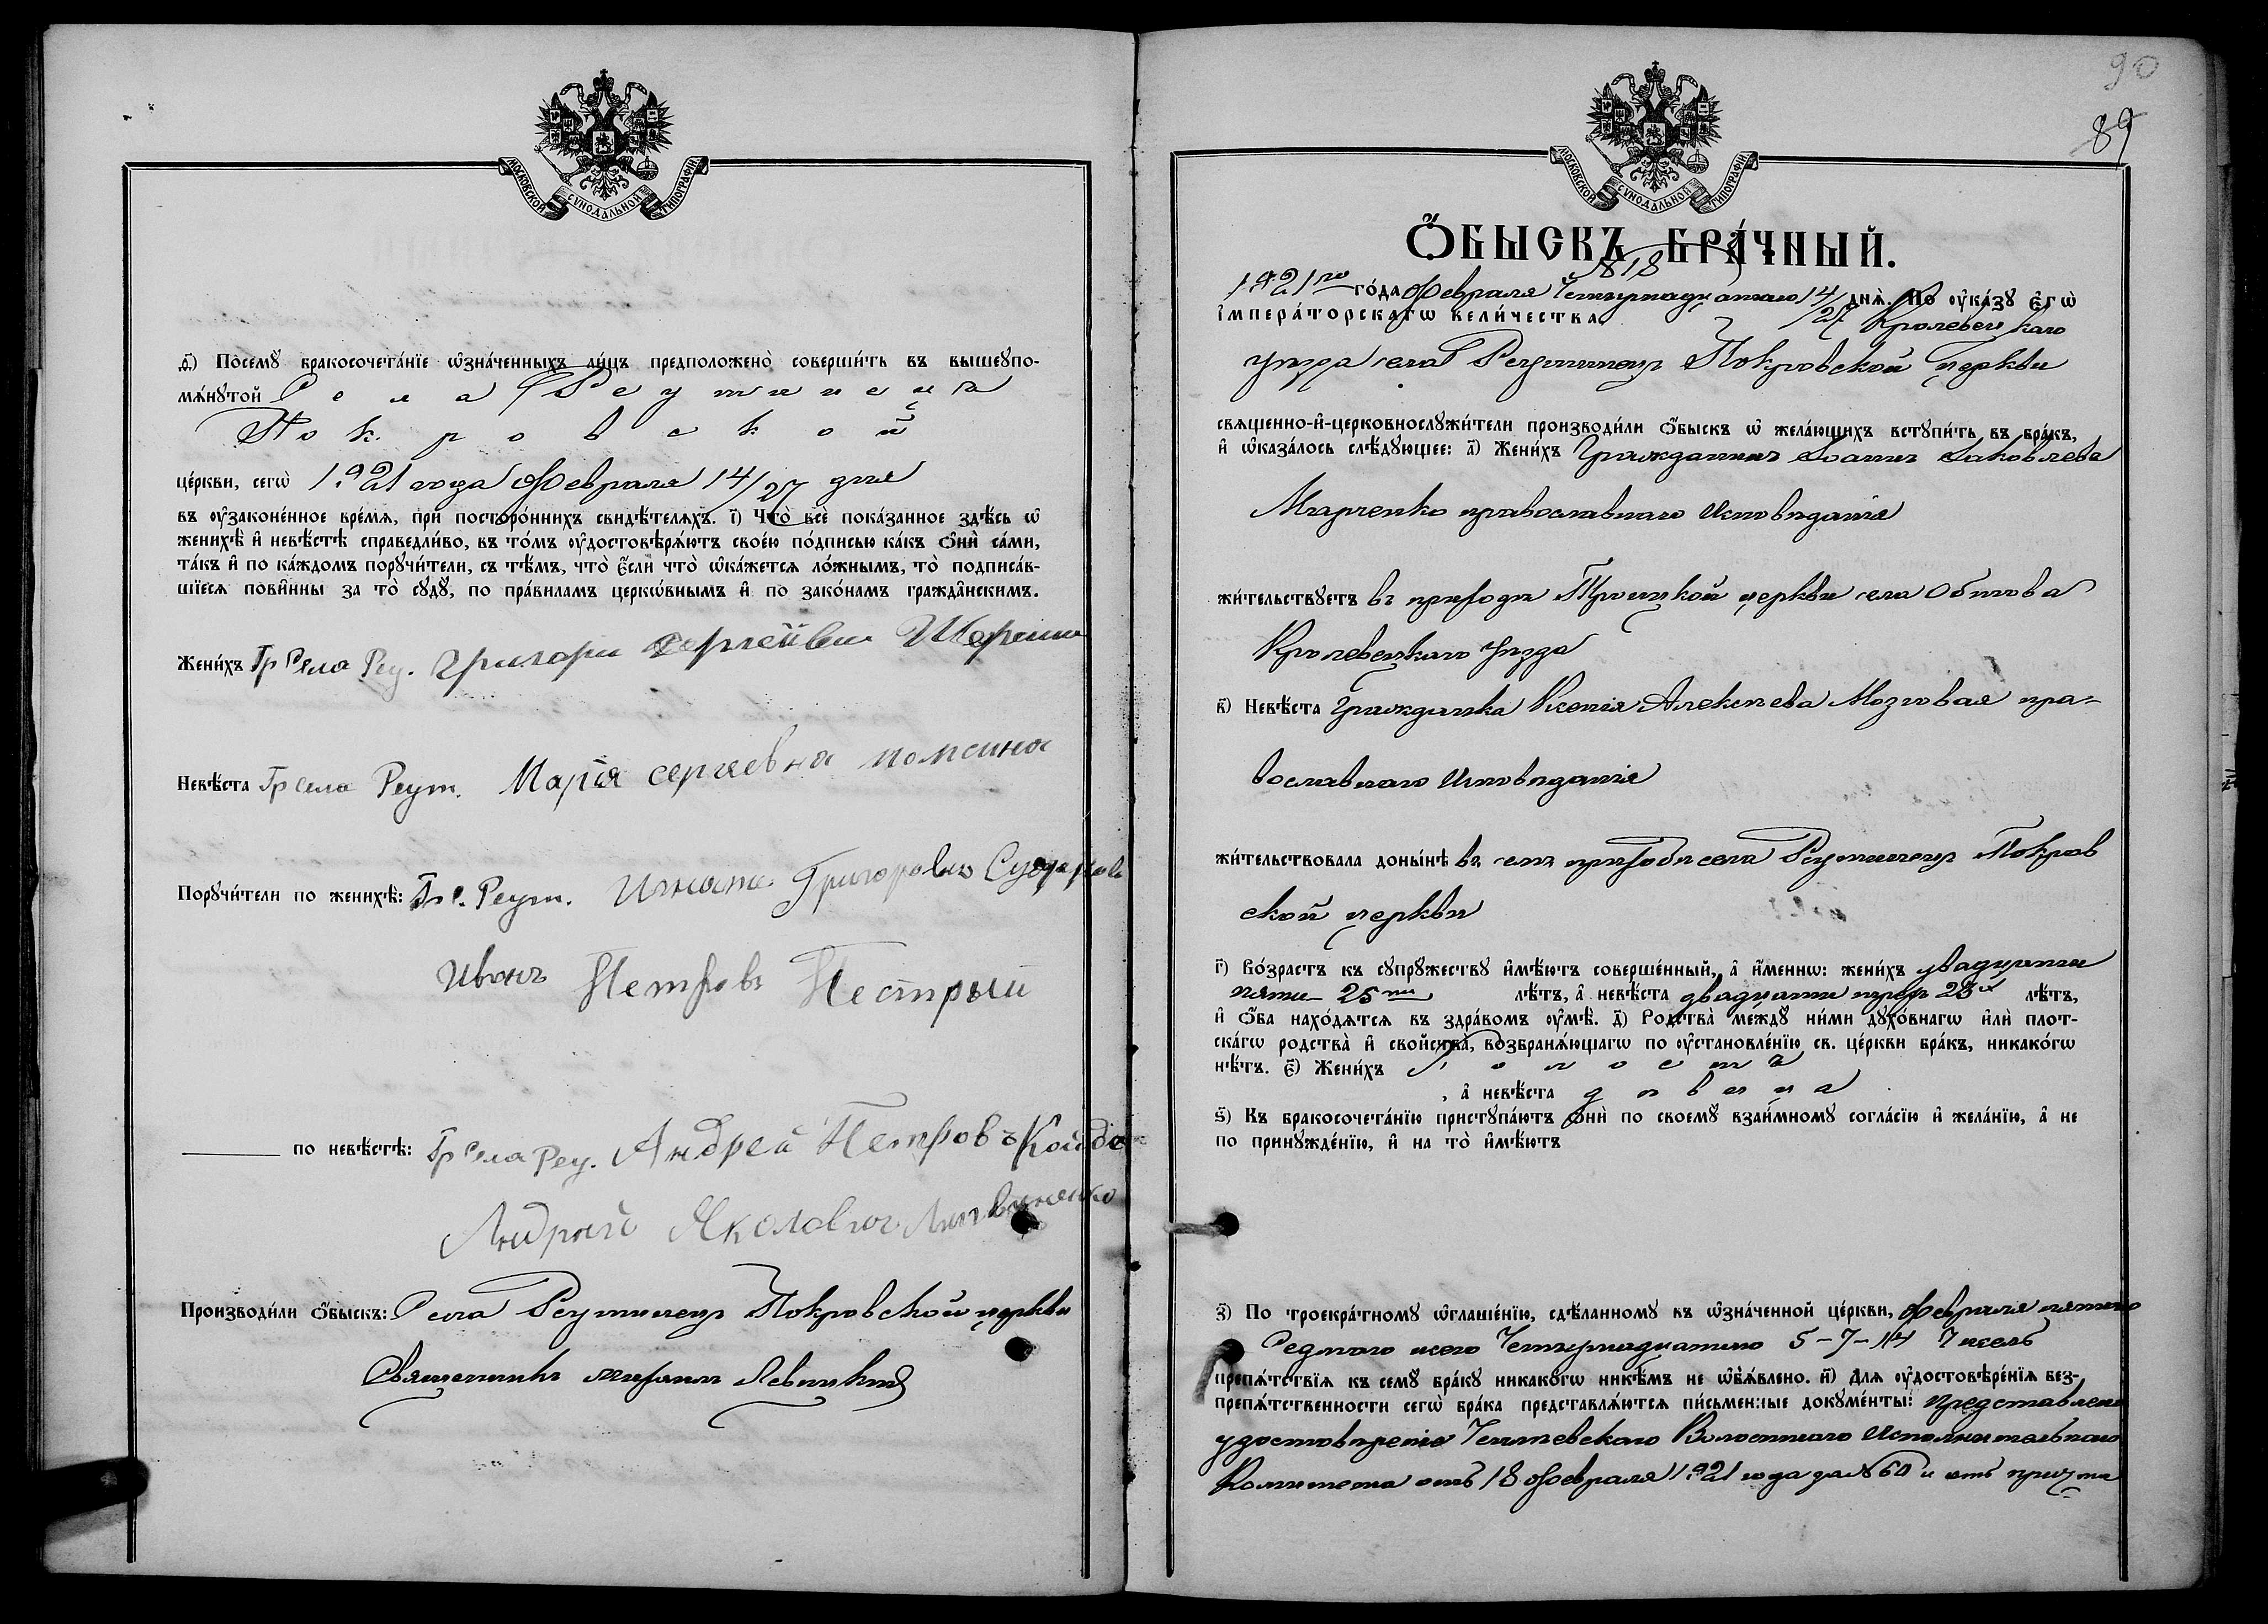 МОСКОВСКОЙ СѴНОДАЛЬНОЙ ТИПОГРАФІИ
ѳ҃) Посемꙋ̀ бракосочета́нїе ѡ҆зна́ченныхъ ли́цъ предположено̀ соверши́ть въ вышеꙋпо-
мѧ́нꙋтой Села Реутинецъ
Покровской
це́ркви, сегѡ̀ 1921 года Февраля 14/27 дня
въ ᲂу҆законе́нное вре́мѧ, при посторо́ннихъ свидѣ́телѧхъ. і҃) Что̀ всѐ пока́занное здѣ́сь ѡ҆
женихѣ̀ и҆ невѣ́стѣ справедли́во, въ то́мъ ᲂу҆достовѣрѧ́ютъ свое́ю по́дписью ка́къ ѻ҆нѝ са́ми,
та́къ и҆ по ка́ждомъ порꙋчи́тели, съ тѣ́мъ, что̀ є҆́сли что̀ ѡ҆ка́жетсѧ ло́жнымъ, то̀ подписа́в-
шїесѧ пови́нны за то̀ сꙋдꙋ̀, по пра́виламъ церкѡ́внымъ и҆ по зако́намъ гражда̂нскимъ.
Жени́хъ Гр Села Реу. Григори
Невѣ́ста Гр Села Реут. Марїя сергаевна
Порꙋчи́тели по женихѣ̀: Гр С. Реут. Григоровъ
Иванъ Петровъ Пестрый
по невѣ́стѣ: Гр Села Реу. Андрей Петровъ
Андрый
Производи́ли ѻ҆́быскъ: Села Реутинецъ Покровской церкви
Священникъ Левицкій
90
89
МОСКОВСКОЙ СѴНОДАЛЬНОЙ ТИПОГРАФІИ
Ѻ҆́БЫСКЪ БРА́ЧНЫЙ.
№ 18
1921го го́да Февраля Четырнадцатаго 14/27 днѧ̀. По ᲂу҆ка́зꙋ є҆гѡ̀
і҆мпера́торскагѡ вели́чества, Кролевецкаго
уѣзда села Реутинецъ Покровской церкви
свѧщенно-и҆-церковнослꙋжи́тели производи́ли ѻ҆́быскъ ѡ҆ жела́ющихъ встꙋпи́ть въ бра́къ,
и҆ ѡ҆каза́лось слѣ́дꙋющее: а҃) Жени́хъ Гражданинъ Іоаннъ Іаковлевъ
Марченко православнаго исповѣданія
жи́тельствꙋетъ въ приходѣ Троицкой церкви села Обтова
Кролевецкаго уѣзда
в҃) Невѣ́ста Гражданка Ксенія Алексѣева Мозговая пра-
вославнаго исповѣданія
жи́тельствовала доны́нѣ въ семъ приходѣ села Реутинецъ Покров
ской церкви
г҃) Во́зрастъ къ сꙋпрꙋ́жествꙋ и҆мѣ́ютъ соверше́нный, а҆ и҆́меннѡ: жени́хъ двадцати
пяти 25ти лѣ́тъ, а҆ невѣ́ста двадцати трехъ 23х лѣ́тъ,
и҆ ѻ҆́ба нахо́дѧтсѧ въ здра́вомъ ᲂу҆мѣ̀. д҃) Родства̀ междꙋ̀ ни́ми дꙋхо́внагѡ и҆лѝ плот-
ска́гѡ родства̀ и҆ сво́йства̀, возбранѧ́ющагѡ по ᲂу҆становле́нїю св. це́ркви бра́къ, никако́гѡ
нѣ́тъ. є҃) Жени́хъ холостъ
, а҆ невѣ́ста дѣвица
ѕ҃) Къ бракосочета́нїю пристꙋпа́ютъ ѻ҆нѝ по своемꙋ̀ взаи́мномꙋ согла́сїю и҆ жела́нїю, а҆ не
по принꙋжде́нїю, и҆ на то̀ и҆мѣ́ютъ
з҃) По троекра́тномꙋ ѡ҆глаше́нїю, сдѣ́ланномꙋ въ ѡ҆зна́ченной це́ркви, Февраля пятаго
Седмаго и Четырнадцатаго 5-7-14 Чиселъ
препѧ́тствїѧ къ семꙋ̀ бра́кꙋ никако́гѡ никѣ́мъ не ѡ҆б̾ѧ́влено. и҃) Длѧ ᲂу҆достовѣре́нїѧ без-
препѧ́тственности сегѡ̀ бра́ка представлѧ́ютсѧ пи́сьменные докꙋме́нты: представлено
удостовѣреніе Волостнаго Исполнительнаго
Комитета отъ 18 Февраля 1921 года за № 60 и отъ причта